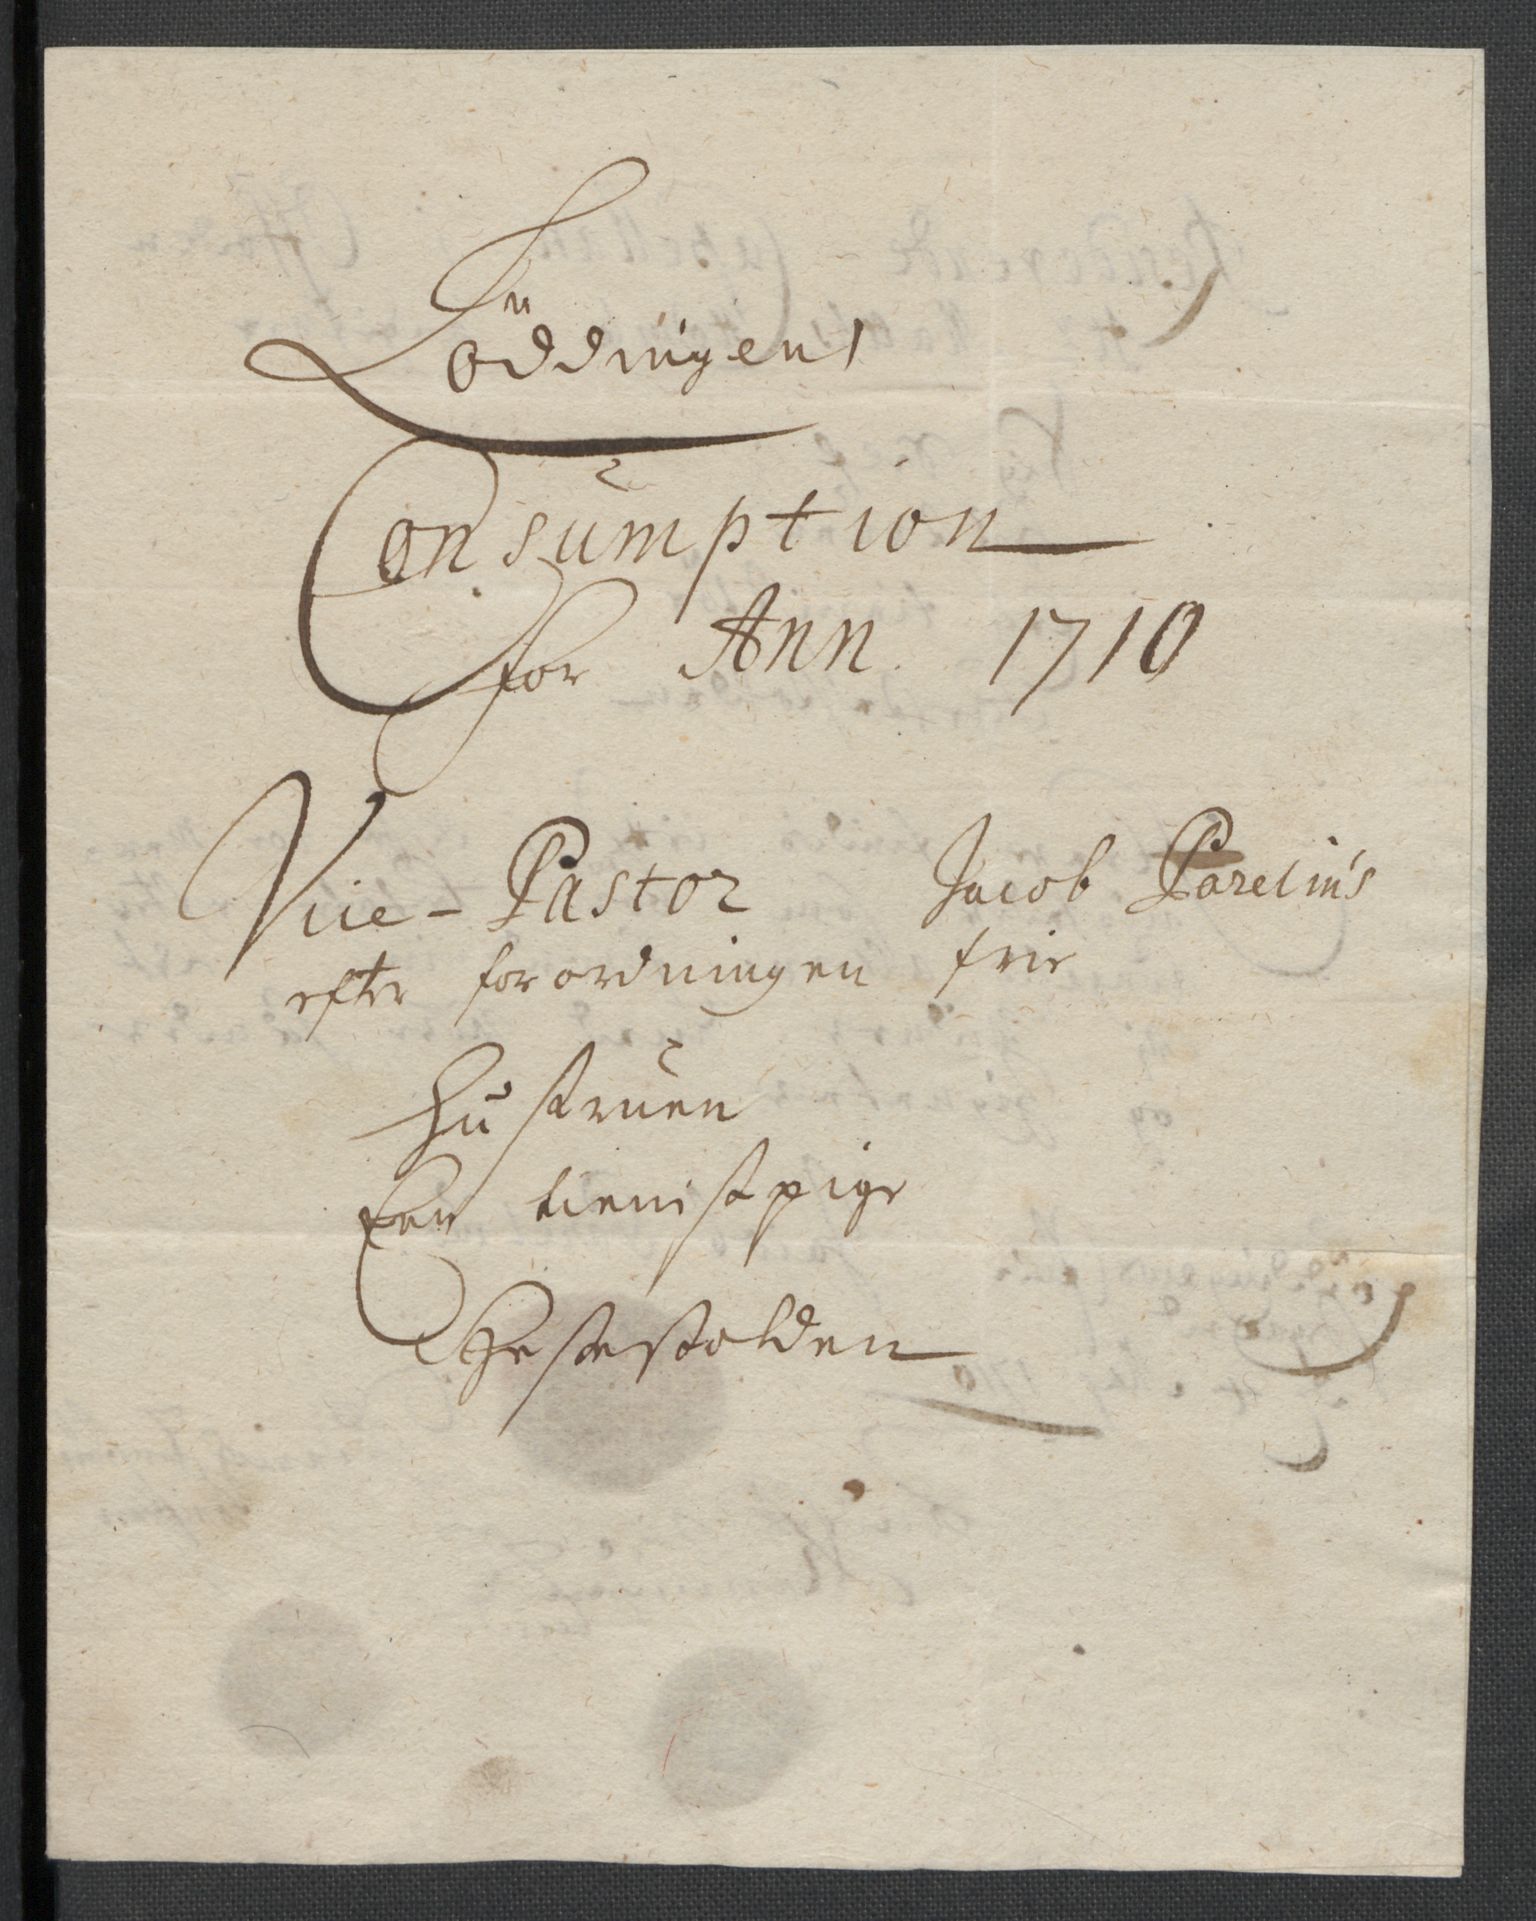 Löddingens
Consumption
for Ann 1710
Vice-Pastor Jacob Parelius
efter forordningen frie
Hustruen
Een tienistpige